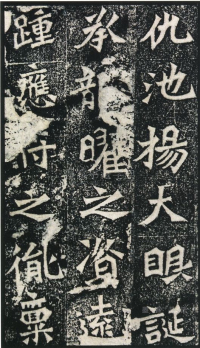 仇池楊大眼誕
承龍曜之資遠
踵應符之胤稟